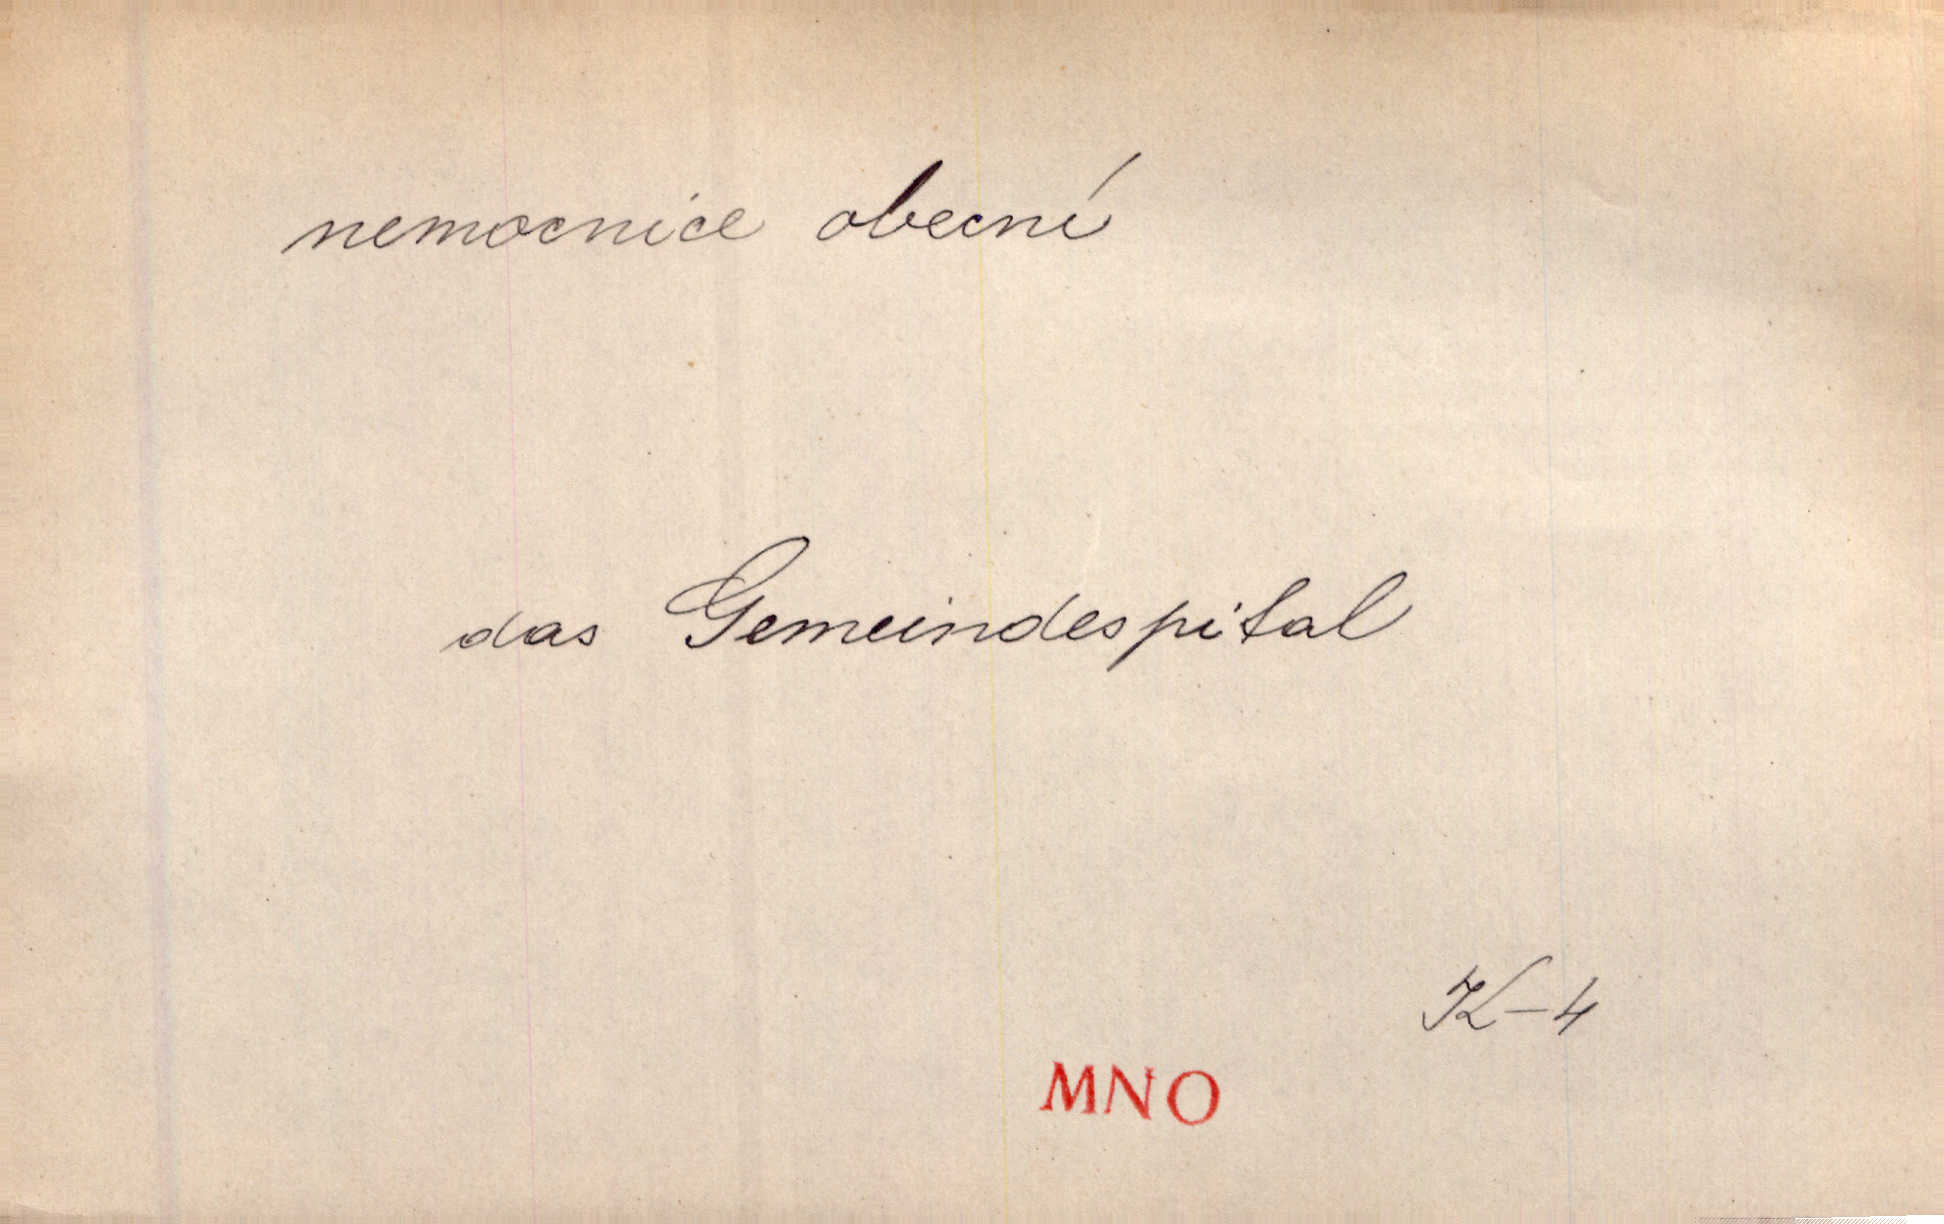 nemocnice obecní
das Gemeindespital
K-4
MNO